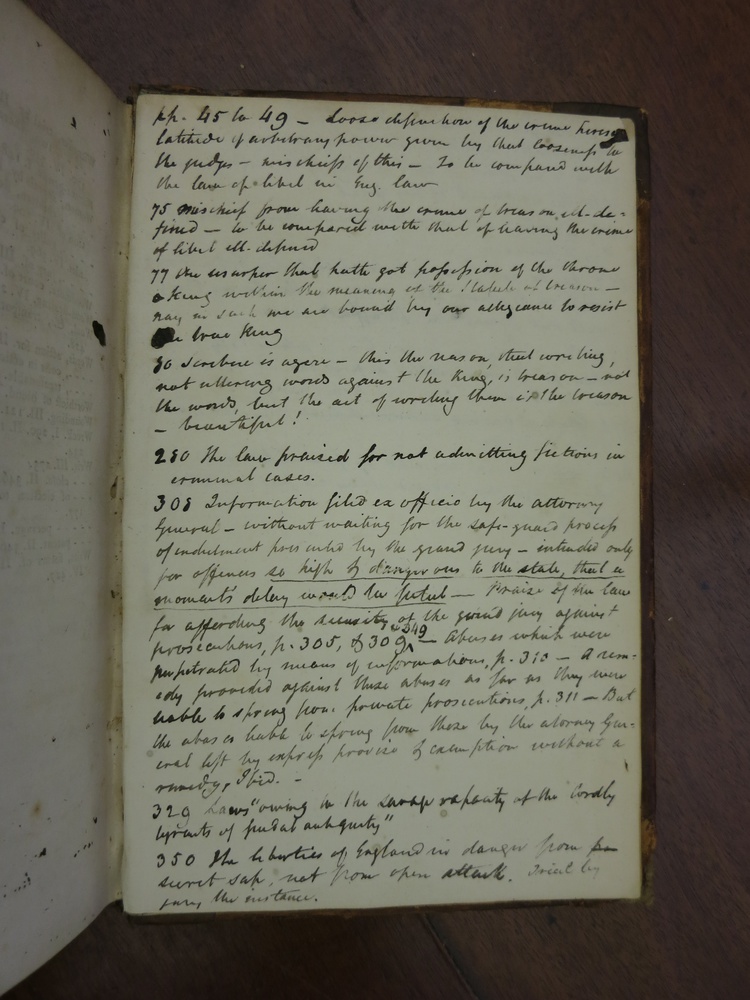 pp. 45 to 49 — Loose definition of the crime
latitude of arbitrary power given by that looseness to
the judges — mischiefs of this — To be compared with
the law of libel in Eng. law
75 mischief from having the crime of treason ill-de-
fined — to be compared with that of having the crime
of libel ill-defined
77 the usurper that hath got possession of the throne
a King within the meaning of the statute of treason —
nay in such we are bound by our allegiance to resist
the true King
80 Scribere is agere — this the reason, that writing,
not uttering words against the King, is treason — not
the words, but the act of writing them is the treason
— beautiful!
280 The law praised for not admitting fictions in
criminal cases.
308 Information filed ex officio by the attorney
General — without waiting for the safe-guard process
of indictment presented by the grand jury — intended only
for offences so high & dangerous to the state, that a
moment's delay would be fatal — Praise of the law
for affording the security of the grand jury against
prosecutions, p. 305, & 309 & 349 — Abuses which were
perpetrated by means of informations, p. 310 — A rem-
edy provided against these abuses as far as they were
liable to spring from private prosecutions, p. 311 — But
the abuses liable to spring from those by the attorney Gen-
eral left by express proviso & exemption without a
remedy, Ibid. —
329 Laws "owing to the savage rapacity of the lordly
tyrants of feudal antiquity"
350 The liberties of England in danger from
secret sap, not from open attack. Trial by
jury the instance.